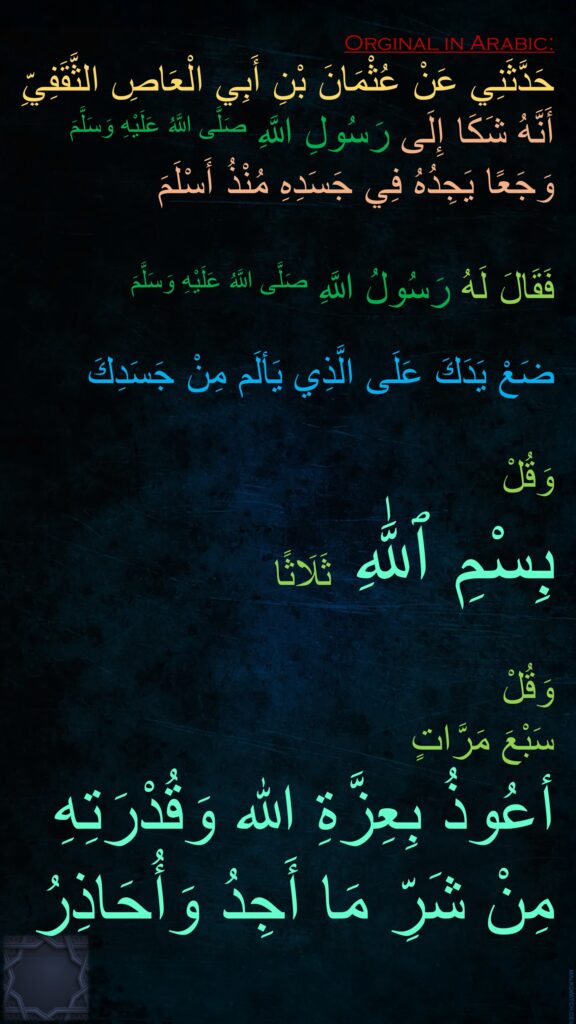 Orginal in Arabic:
حَدَّثَنِي عَنْ عُثْمَانَ بْنِ أَبِي الْعَاصِ الثَّقَفِيِّ
أَنَّهُ شَكَا إِلَى رَسُولِ اللَّهِ صَلَّى اللَّهُ عَلَيْهِ وَسَلَّمَ
وَجَعًا يَجِدُهُ فِي جَسَدِهِ مُنْذُ أَسْلَمَ
فَقَالَ لَهُ رَسُولُ اللَّهِ صَلَّى اللَّهُ عَلَيْهِ وَسَلَّمَ
ضَعْ يَدَكَ عَلَى الَّذِي يَألَم مِنْ جَسَدِكَ
وَقُلْ
بِسْمِ ٱللَّٰهِ ثَلَاثًا
وَقُلْ
سَبْعَ مَرَّاتٍ
أعُوذُ بِعِزَّةِ الله وَقُدْرَتِهِ
مِنْ شَرِّ مَا أَجِدُ وَأُحَاذِرُ